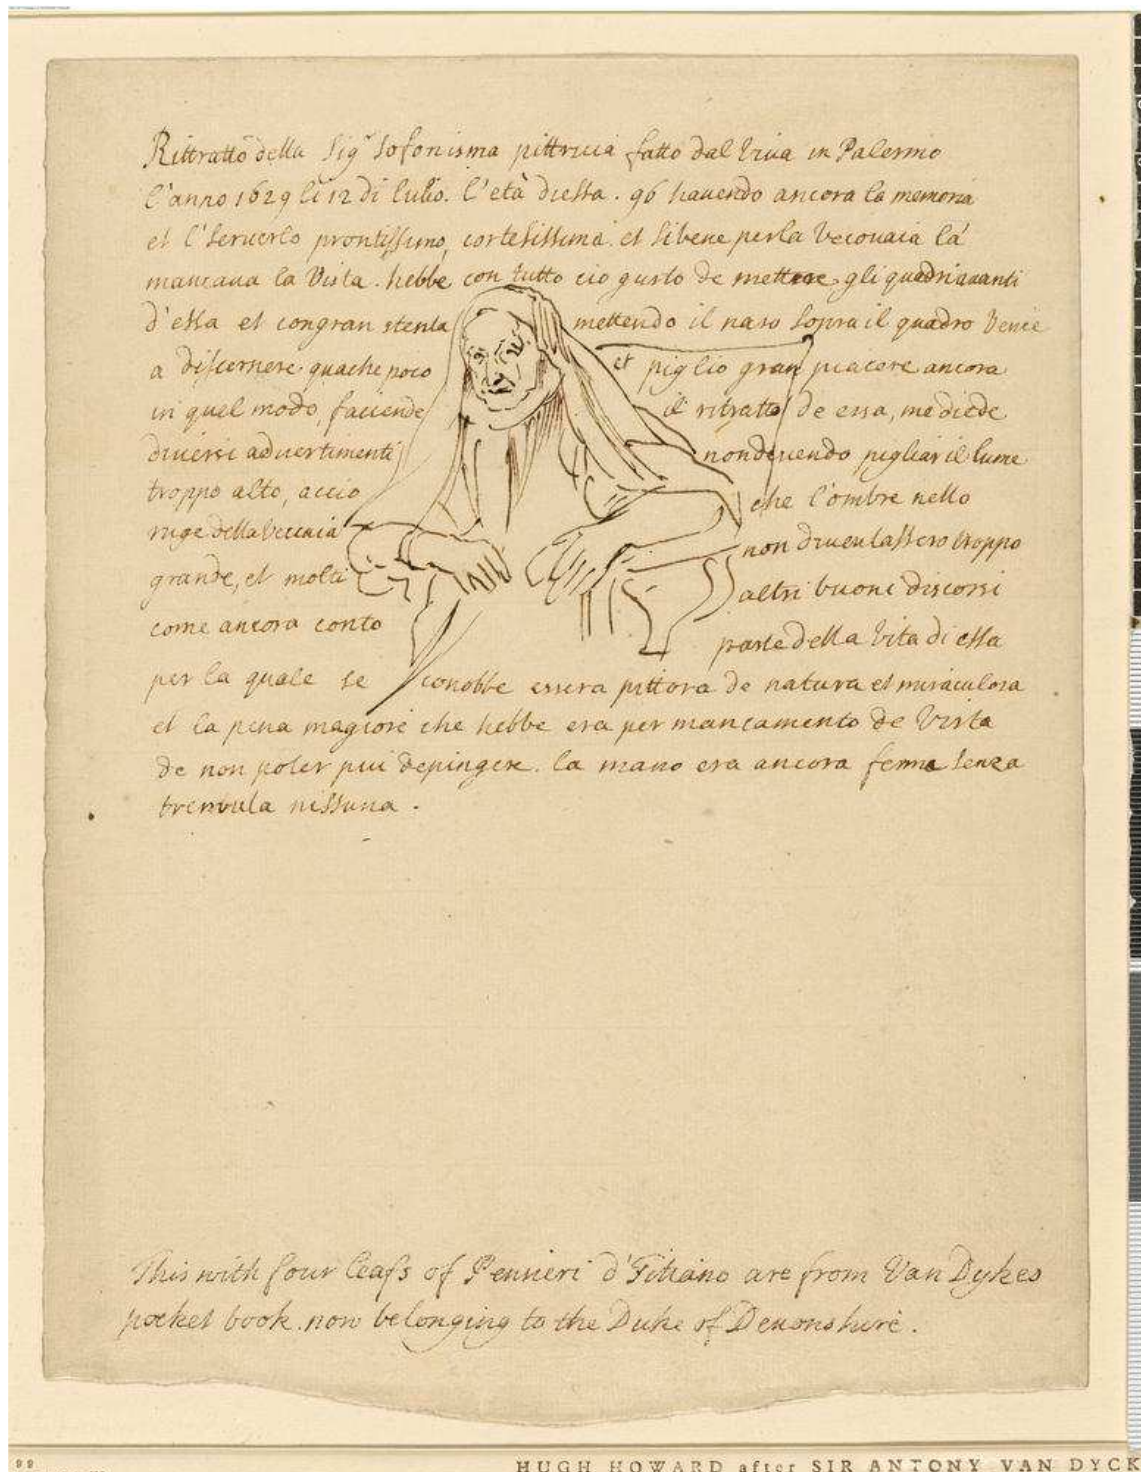 Rittratto della Sig.ra Sofonisma pittricia fatto dal viva in Palermo
l'anno 1629 li 12 di lulio. l'età diessa. 96 havendo ancora la memoria
et l'serverlo prontissimo, cortesissima. et sibene perla vecouaia la
mancava la vista. hebbe con tutto cio gusto de mettere gli quadri avanti
d'essa et congran stenta mettendo il naso sopra il quadro venie
a discernere quache poco et piglio gran piacere ancora
in quel modo, faciende il ritratto de essa, me diede
diversi advertimenti nondevendo pigliar il lume
troppo alto, accio che l'ombre nello
ruge della veccaia non diventassero troppo
grande, et molti altri buoni discorsi
come ancora conto parte della vita di essa
per la quale se conobbe essera pittora de natura et miraculosa
et la pena magiore che hebbe era per mancamento de vista
de non poter pui depingere. la mano era ancora ferma senza
tremula nissuna.
This with four leafs of Pennieri d'Titiano are from Van Dykes
pocket book. now belonging to the Duke of Devonshire.
99
HUGH HOWARD after SIR ANTONY VAN DYCK